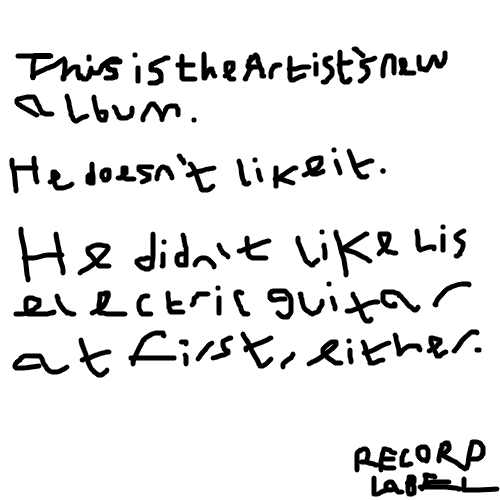 This is the Artist's new
album.
He doesn't like it.
He didn't like his
electric guitar
at first, either.
RECORD
LABEL